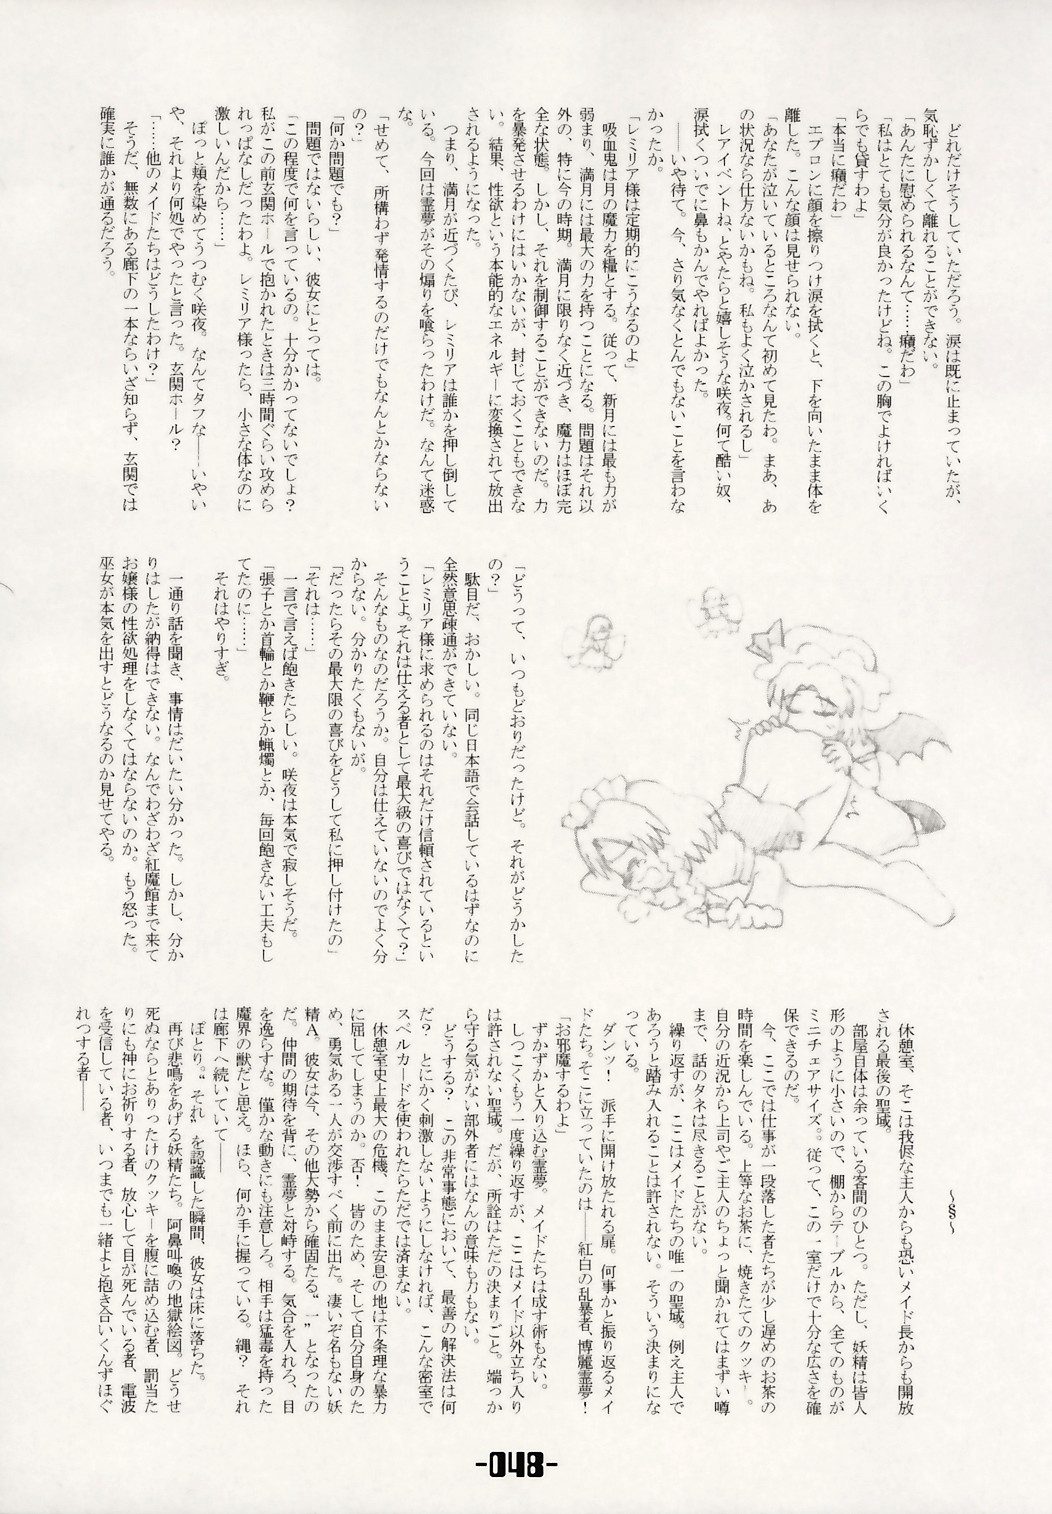 どれだけそうしていただろう。涙は既に止まっていたが、
気恥ずかしくて離れることができない。
「あんたに慰められるなんて……癪だわ」
「私はとても気分が良かったけどね。この胸でよければいく
らでも貸すわよ」
「本当に癪だわ」
　エプロンに顔を擦りつけ涙を拭くと、下を向いたまま体を
離した。こんな顔は見せられない。
「あなたが泣いているところなんて初めて見たわ。まあ、あ
の状況なら仕方ないかもね。私もよく泣かされるし」
　レアイベントね、とやたらと嬉しそうな咲夜。何て酷い奴、
涙拭くついでに鼻もかんでやればよかった。
　――いや待て。今、さり気なくとんでもないことを言わな
かったか。
「レミリア様は定期的にこうなるのよ」
　吸血鬼は月の魔力を糧とする。従って、新月には最も力が
弱まり、満月には最大の力を持つことになる。問題はそれ以
外の、特に今の時期。満月に限りなく近づき、魔力はほぼ完
全な状態。しかし、それを制御することができないのだ。力
を暴発させるわけにはいかないが、封じておくこともできな
い。結果、性欲という本能的なエネルギーに変換されて放出
されるようになった。
　つまり、満月が近づくたび、レミリアは誰かを押し倒して
いる。今回は霊夢がその煽りを喰らったわけだ。なんて迷惑
な。
「せめて、所構わず発情するのだけでもなんとかならない
の？」
「何か問題でも？」
　問題ではないらしい、彼女にとっては。
「この程度で何を言っているの。十分かかってないでしょ？
私がこの前玄関ホールで抱かれたときは三時間ぐらい攻めら
れっぱなしだったわよ。レミリア様ったら、小さな体なのに
激しいんだから……」
　ぽっと頬を染めてうつむく咲夜。なんてタフな――いやい
や、それより何処でやったと言った。玄関ホール？
「……他のメイドたちはどうしたわけ？」
　そうだ、無数にある廊下の一本ならいざ知らず、玄関では
確実に誰かが通るだろう。
「どうって、いつもどおりだったけど。それがどうかした
の？」
　駄目だ、おかしい。同じ日本語で会話しているはずなのに
全然意思疎通ができていない。
「レミリア様に求められるのはそれだけ信頼されているとい
うことよ。それは仕える者として最大級の喜びではなくて？」
　そんなものなのだろうか。自分は仕えていないのでよく分
からない。分かりたくもないが。
「だったらその最大限の喜びをどうして私に押し付けたの」
「それは……」
　一言で言えば飽きたらしい。咲夜は本気で寂しそうだ。
「張子とか首輪とか鞭とか蝋燭とか、毎回飽きない工夫もし
てたのに……」
　それはやりすぎ。
　一通り話を聞き、事情はだいたい分かった。しかし、分か
りはしたが納得はできない。なんでわざわざ紅魔館まで来て
お嬢様の性欲処理をしなくてはならないのか。もう怒った。
巫女が本気を出すとどうなるのか見せてやる。
～§～
　休憩室、そこは我侭な主人からも恐いメイド長からも開放
される最後の聖域。
　部屋自体は余っている客間のひとつ。ただし、妖精は皆人
形のように小さいので、棚からテーブルから、全てのものが
ミニチュアサイズ。。従って、この一室だけで十分な広さを確
保できるのだ。
　今、ここでは仕事が一段落した者たちが少し遅めのお茶の
時間を楽しんでいる。上等なお茶に、焼きたてのクッキー。
自分の近況から上司やご主人のちょっと聞かれてはまずい噂
まで、話のタネは尽きることがない。
　繰り返すが、ここはメイドたちの唯一の聖域。例え主人で
あろうと踏み入れることは許されない。そういう決まりにな
っている。
　ダンッ！　派手に開け放たれる扉。何事かと振り返るメイ
ドたち。そこに立っていたのは――紅白の乱暴者、博麗霊夢！
「お邪魔するわよ」
　ずかずかと入り込む霊夢。メイドたちは成す術もない。
　しつこくもう一度繰り返すが、ここはメイド以外立ち入り
は許されない聖域。だが、所詮はただの決まりごと。端っか
ら守る気がない部外者にはなんの意味も力もない。
　どうする？　この非常事態において、最善の解決法は何
だ？　とにかく刺激しないようにしなければ、こんな密室で
スペルカードを使われたらただでは済まない。
　休憩室史上最大の危機、このまま安息の地は不条理な暴力
に屈してしまうのか。否！　皆のため、そして自分自身のた
め、勇気ある一人が交渉すべく前に出た。凄いぞ名もない妖
精Ａ。彼女は今、その他大勢から確固たる〝一〟となったの
だ。仲間の期待を背に、霊夢と対峙する。気合を入れろ、目
を逸らすな。僅かな動きにも注意しろ。相手は猛毒を持った
魔界の獣だと思え。ほら、何か手に握っている。縄？　それ
は廊下へ続いていて――
　ぽとり。〝それ〟を認識した瞬間、彼女は床に落ちた。
　再び悲鳴をあげる妖精たち。阿鼻叫喚の地獄絵図。どうせ
死ぬならとありったけのクッキーを腹に詰め込む者、罰当た
りにも神にお祈りする者、放心して目が死んでいる者、電波
を受信している者、いつまでも一緒よと抱き合いくんずほぐ
れつする者――
-048-